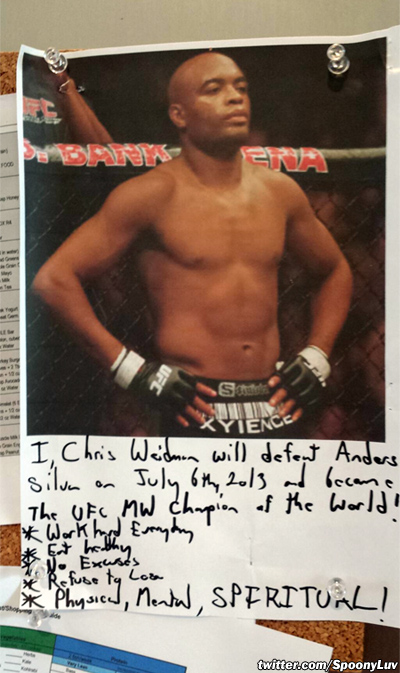 UFC
S. BANK ARENA
UFC
XYIENCE
I, Chris Weidman will defeat Anders
Silva on July 6th, 2013 and become
The UFC MW Champion of the World!
* Work hard Everyday
* Eat healthy
* No Excuses
* Refuse to Lose
* Physical, Mental, SPIRITUAL!
twitter.com/SpoonyLuv